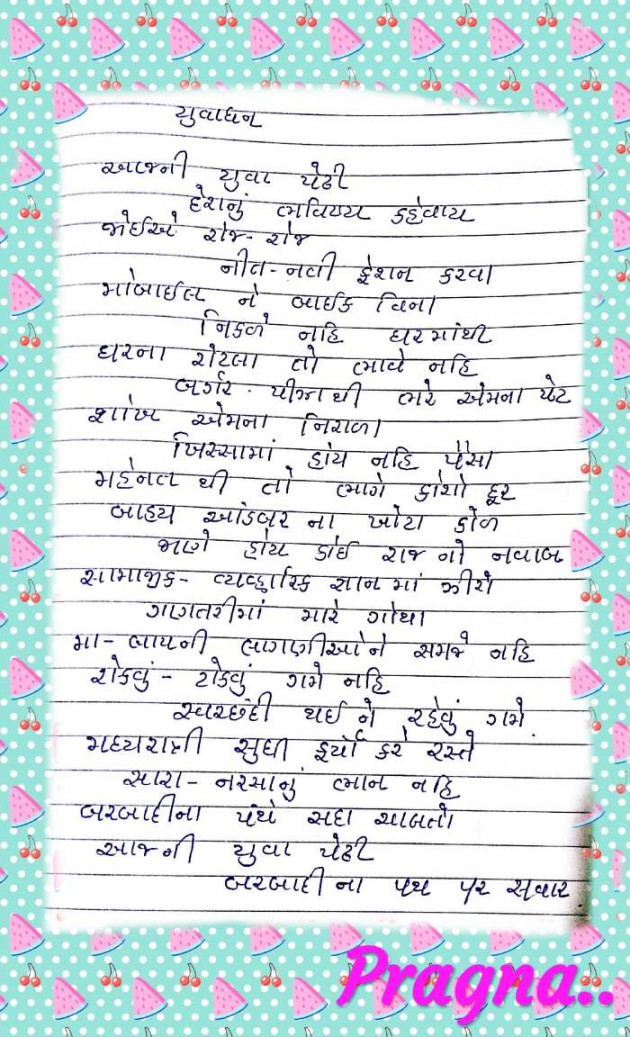 યુવાધન
આજની યુવા પેઢી
દેશનું ભવિષ્ય કહેવાય
જોઈએ રોજ-રોજ
નીત-નવી ફેશન કરવા
મોબાઈલ ને બાઈક વિના
નિકળે નહિ ઘરમાંથી
ઘરના રોટલા તો ભાવે નહિ
બર્ગર-પીઝાથી ભરે એમના પેટ
શોખ એમના નિરાળા
ખિસ્સામાં હોય નહિ પૈસા
મહેનત થી તો ભાગે કોશો દૂર
બાહ્ય આંડબર ના ખોટા ડોળ
જાણે હોય કોઈ રાજ નો નવાબ
સામાજીક- વ્યવ્હારિક જ્ઞાન માં ઝીરો
ગાણતરીમાં મારે ગોથા
મા-બાપની લાગણીઓને સમજે નહિ
રોકવું - ટોકવું ગમે નહિ
સ્વરછંદી થઈ ને રહેવું ગમે
મધ્યરાત્રી સુધી ફર્યા કરે રસ્તે
સારા-નરસાનું ભાન નહિ
બરબાદીના પંથે સદા ચાલતો
આજની યુવા પેઢી
બરબાદી ના પથ પર સવાર
Pragna..